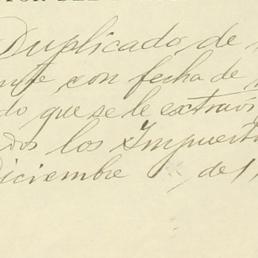 Duplicado de
con fecha de
do que se le extravi
los Impuest
Diciembre de 1